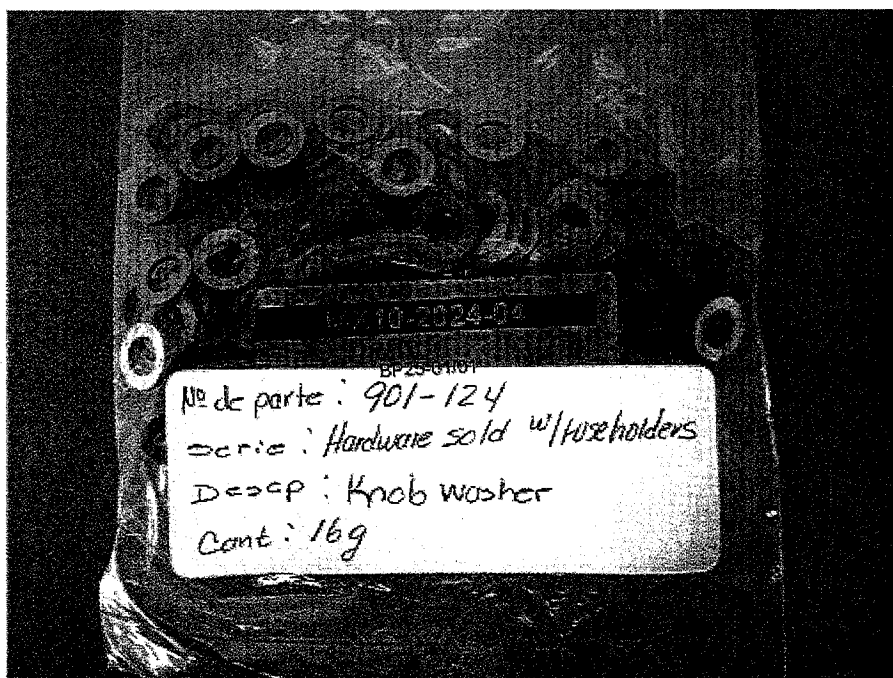 10-2024-04
BP25-01/01
Nº de parte : 901-124
serie : Hardware sold w/fuseholders
Descp : Knob washer
Cant : 16g